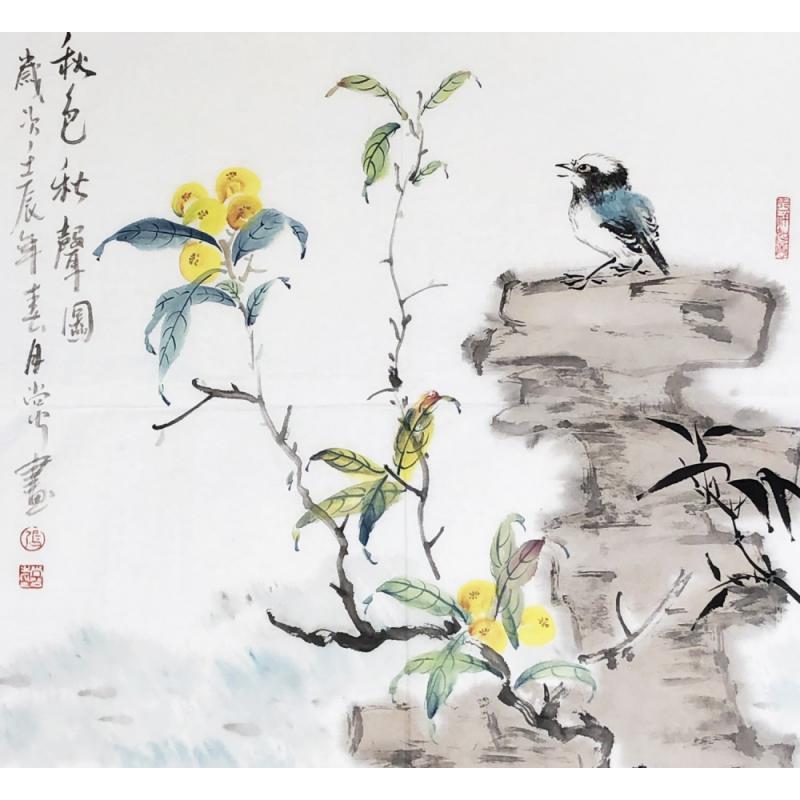 秋色秋聲圖
歲次壬辰年春月常畫
張